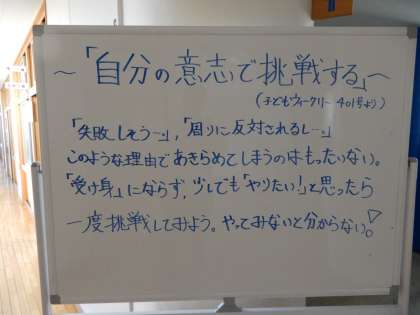 ～「自分の意志で挑戦する」～
(子どもウィークリー 401号より)
「失敗しそう…」,「周りに反対されるし…」
このような理由であきらめてしまうのはもったいない。
「受け身」にならず,少しでも「やりたい!」と思ったら
一度挑戦してみよう。やってみないと分からない!